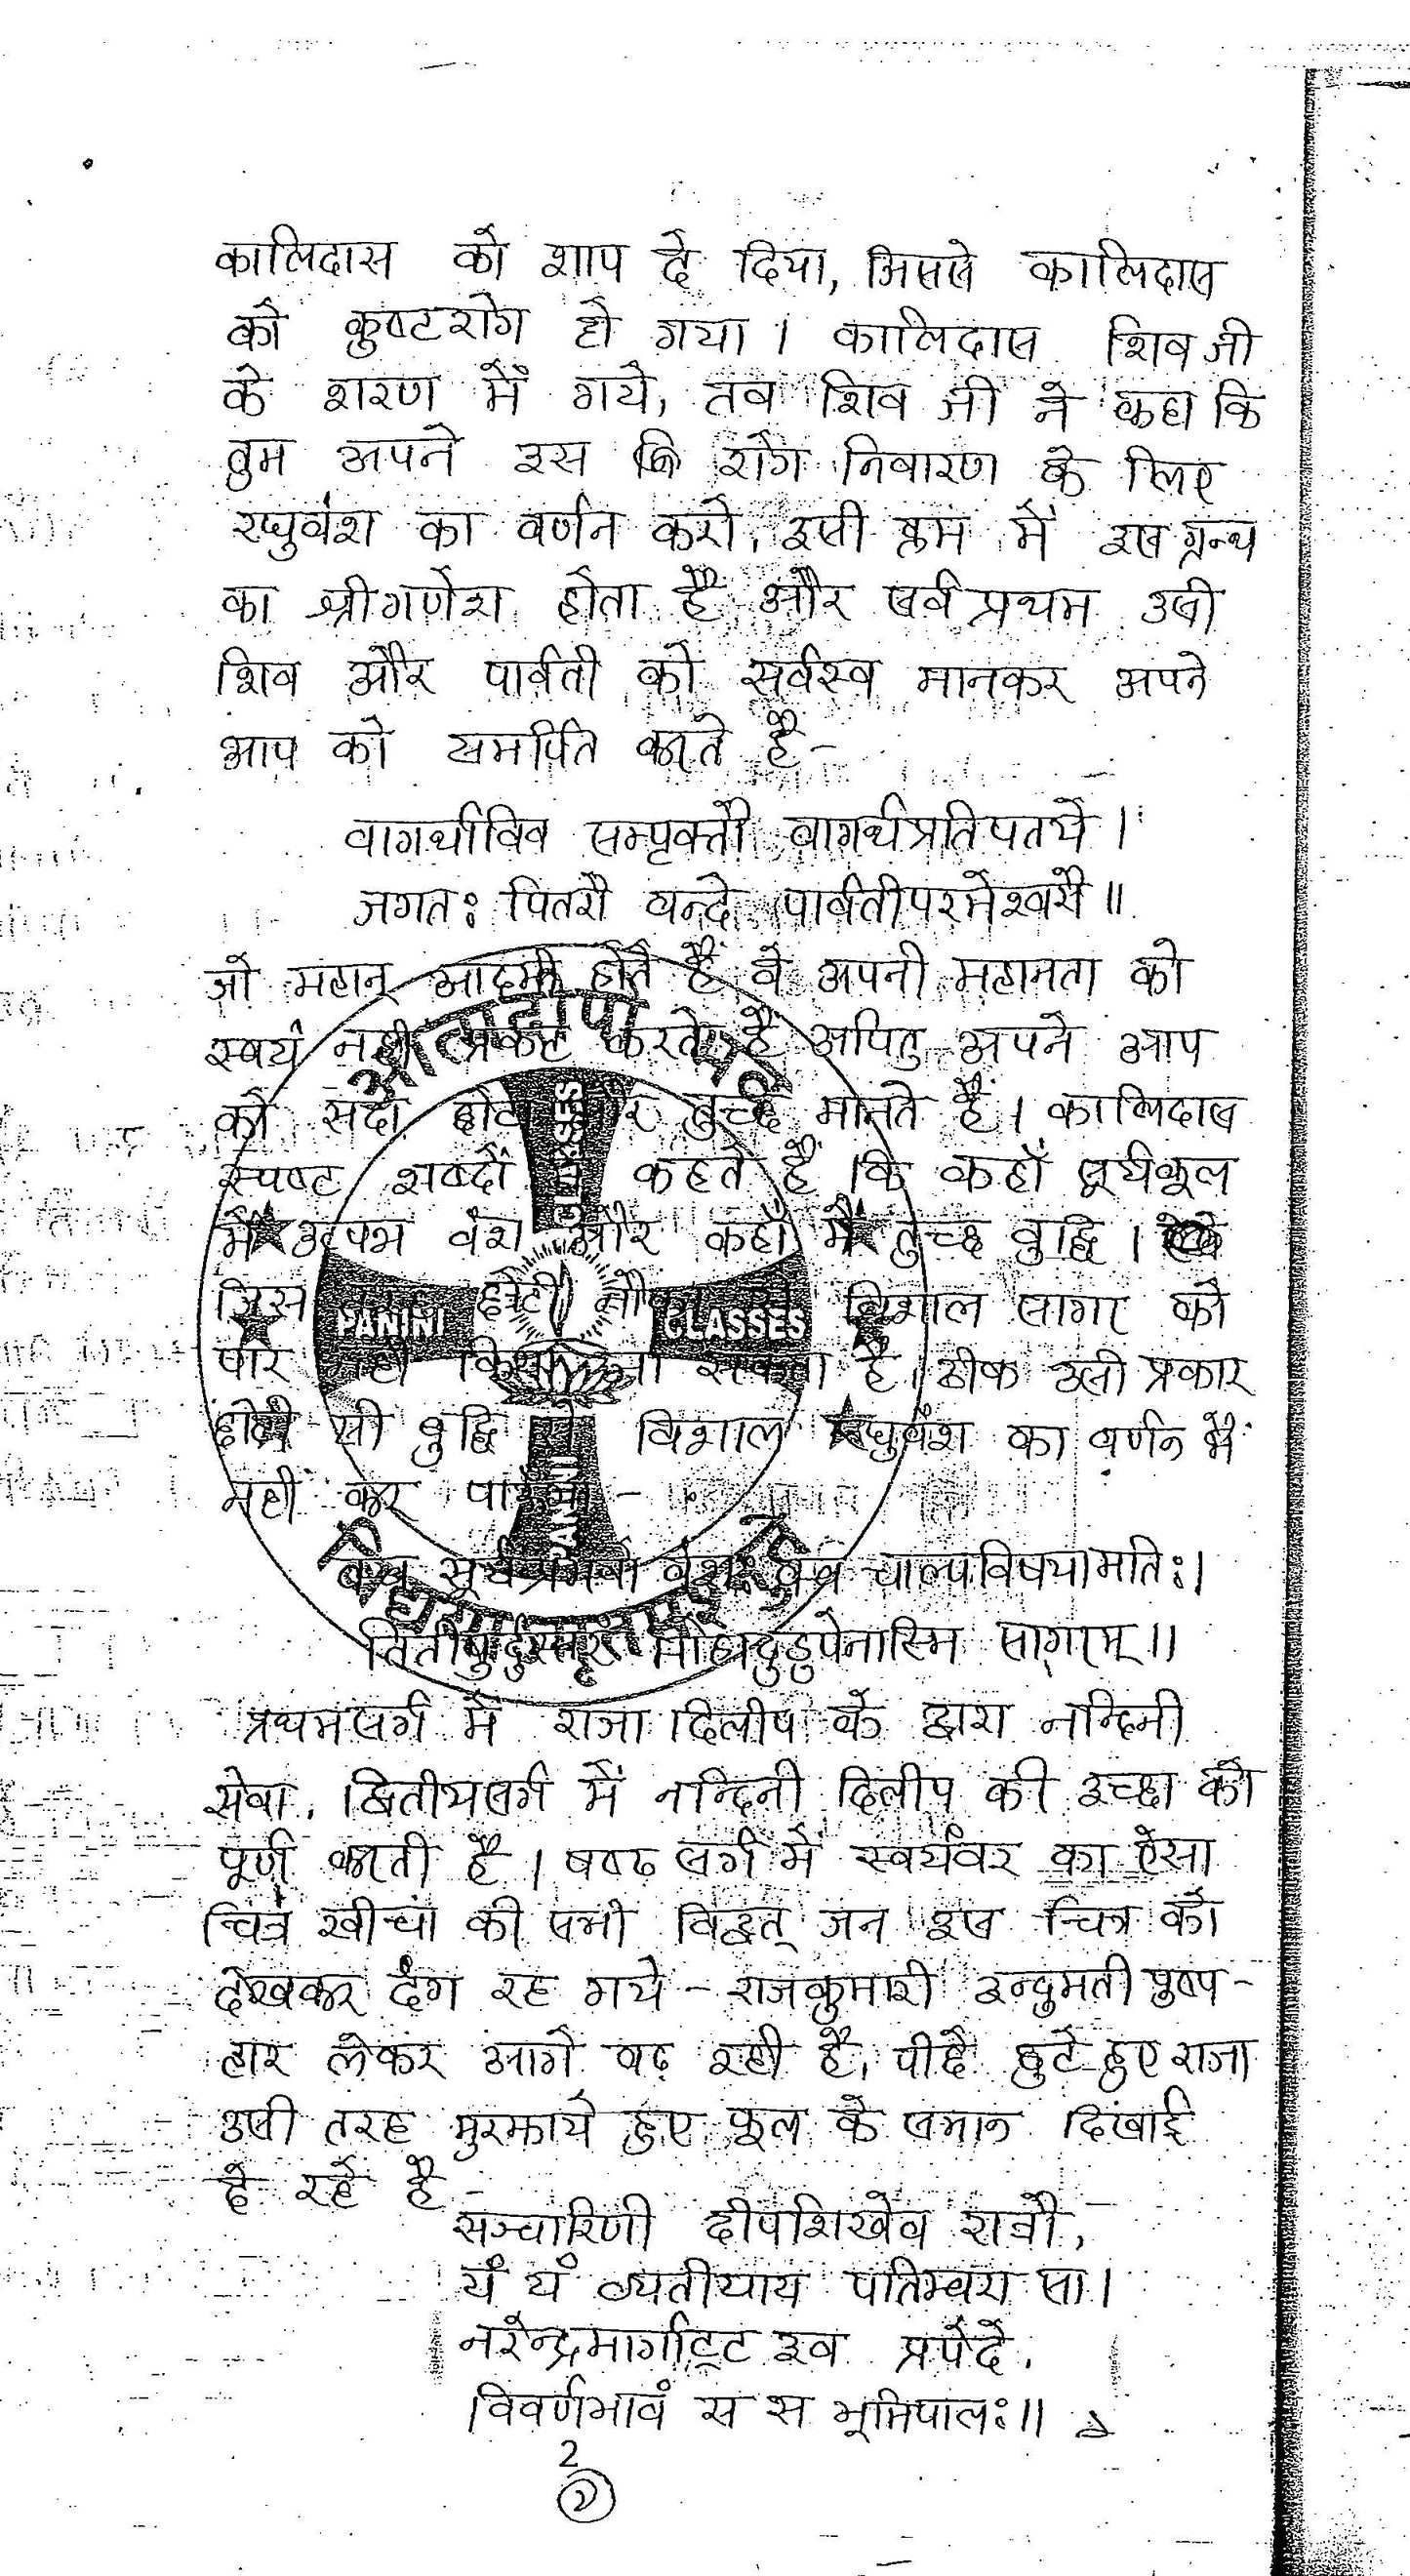 कालिदास को शाप दे दिया, जिससे कालिदास
को कुष्टरोग हो गया। कालिदास शिव जी
के शरण में गये, तब शिव जी ने कहा कि
तुम अपने इस रोग निवारण के लिए
रघुवंश का वर्णन करो, इसी क्रम में इस ग्रन्थ
का श्रीगणेश होता है और सर्व प्रथम उसी
शिव और पार्वती को सर्वस्व मानकर अपने
आप को समर्पित करते है-
वागर्थाविव सम्पृक्तौ वागर्थप्रतिपतये।
जगतः पितरौ वन्दे पार्वतीपरमेश्वरौ॥
जो महान् आदमी होते हैं वे अपनी महानता को
स्वयं नहीं प्रकट करते है अपितु अपने आप
को सदा छोटा और तुच्छ मानते हैं। कालिदास
स्पष्ट शब्दों में कहते हैं कि कहाँ सूर्यकूल
में उत्पन्न वंश और कहाँ मैं तुच्छ बुद्धि।
जिस छोटी नौका से विशाल सागर को
पार नहीं किया जा सकता है। ठीक उसी प्रकार
छोटी सी बुद्धि से विशाल रघुवंश का वर्णन मैं
नहीं कर पाऊँगा -
क्व सूर्यप्रभवो वंशः क्व चाल्पविषयामतिः।
तितीर्षुर्दुस्तरं मोहादुडुपेनास्मि सागरम्॥
प्रथमसर्ग में राजा दिलीप के द्वारा नन्दिनी
सेवा, द्वितीयसर्ग में नन्दिनी दिलीप की इच्छा को
पूर्ण करती है। षष्ठ सर्ग में स्वयंवर का ऐसा
चित्र खींचा की सभी विद्वत् जन इस चित्र को
देखकर दंग रह गये - राजकुमारी इन्दुमती पुष्प-
हार लेकर आगे बढ़ रही है, पीछे छुटे हुए राजा
उसी तरह मुरझाये हुए फूल के समान दिखाई
दे रहे है -
सञ्चारिणी दीपशिखेव रात्रौ,
यं यं व्यतीयाय पतिम्वरा सा।
नरेन्द्रमार्गाट्ट इव प्रपेदे,
विवर्णभावं स स भूमिपालः॥
2
2
PANINI CLASSES